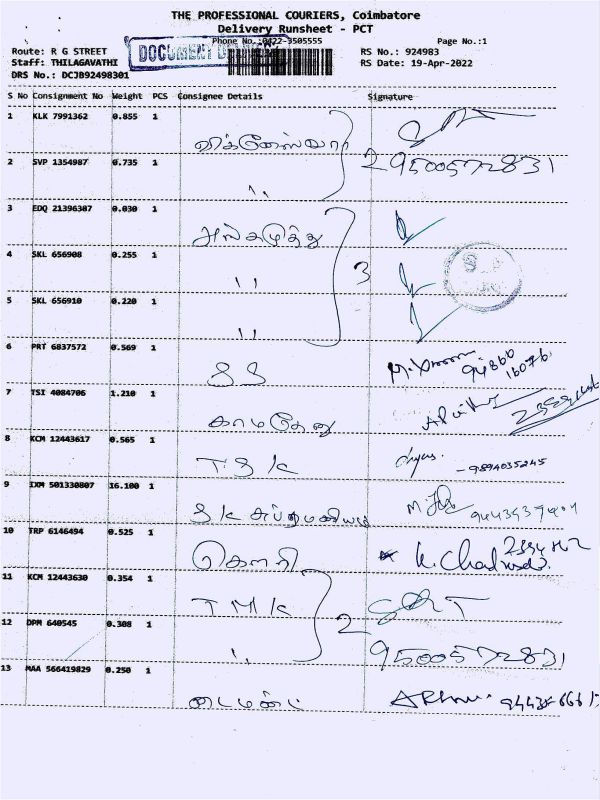 THE PROFESSIONAL COURIERS, Coimbatore
Delivery Runsheet - PCT
Phone No.:0422-3505555 Page No.:1
Route: R G STREET RS No.: 924983
Staff: THILAGAVATHI RS Date: 19-Apr-2022
DRS No.: DCJB92498301
DOCUMENT
S No Consignment No Weight PCS Consignee Details Signature
1 KLK 7991362 0.855 1
விக்னேஸ்வரா
2 SVP 1354987 0.735 1 2 9500572831
,,
3 EDQ 21396387 0.030 1
4 SKL 656908 0.255 1
,, 3
5 SKL 656910 0.220 1
,,
6 PRT 6837572 0.569 1
SS 94860 16076
7 TSI 4084706 1.210 1
காமதேனு
8 KCM 12443617 0.565 1
T.S.K - 9894035245
9 IXM 501330807 16.100 1
S K சுப்ரமணியம்
10 TRP 6146494 0.525 1
கௌரி
11 KCM 12443630 0.354 1
T M K 2
12 DPM 640545 0.308 1
,, 9500572831
13 MAA 566419829 0.250 1
டைமண்ட்